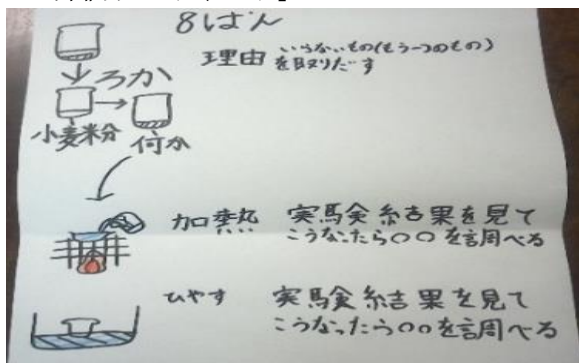 8はん
理由 いらないもの(もう一つのもの)
を取りだす
ろか
小麦粉 何か
加熱 実験結果を見て
こうなったら○○を調べる
ひやす 実験結果を見て
こうなったら○○を調べる